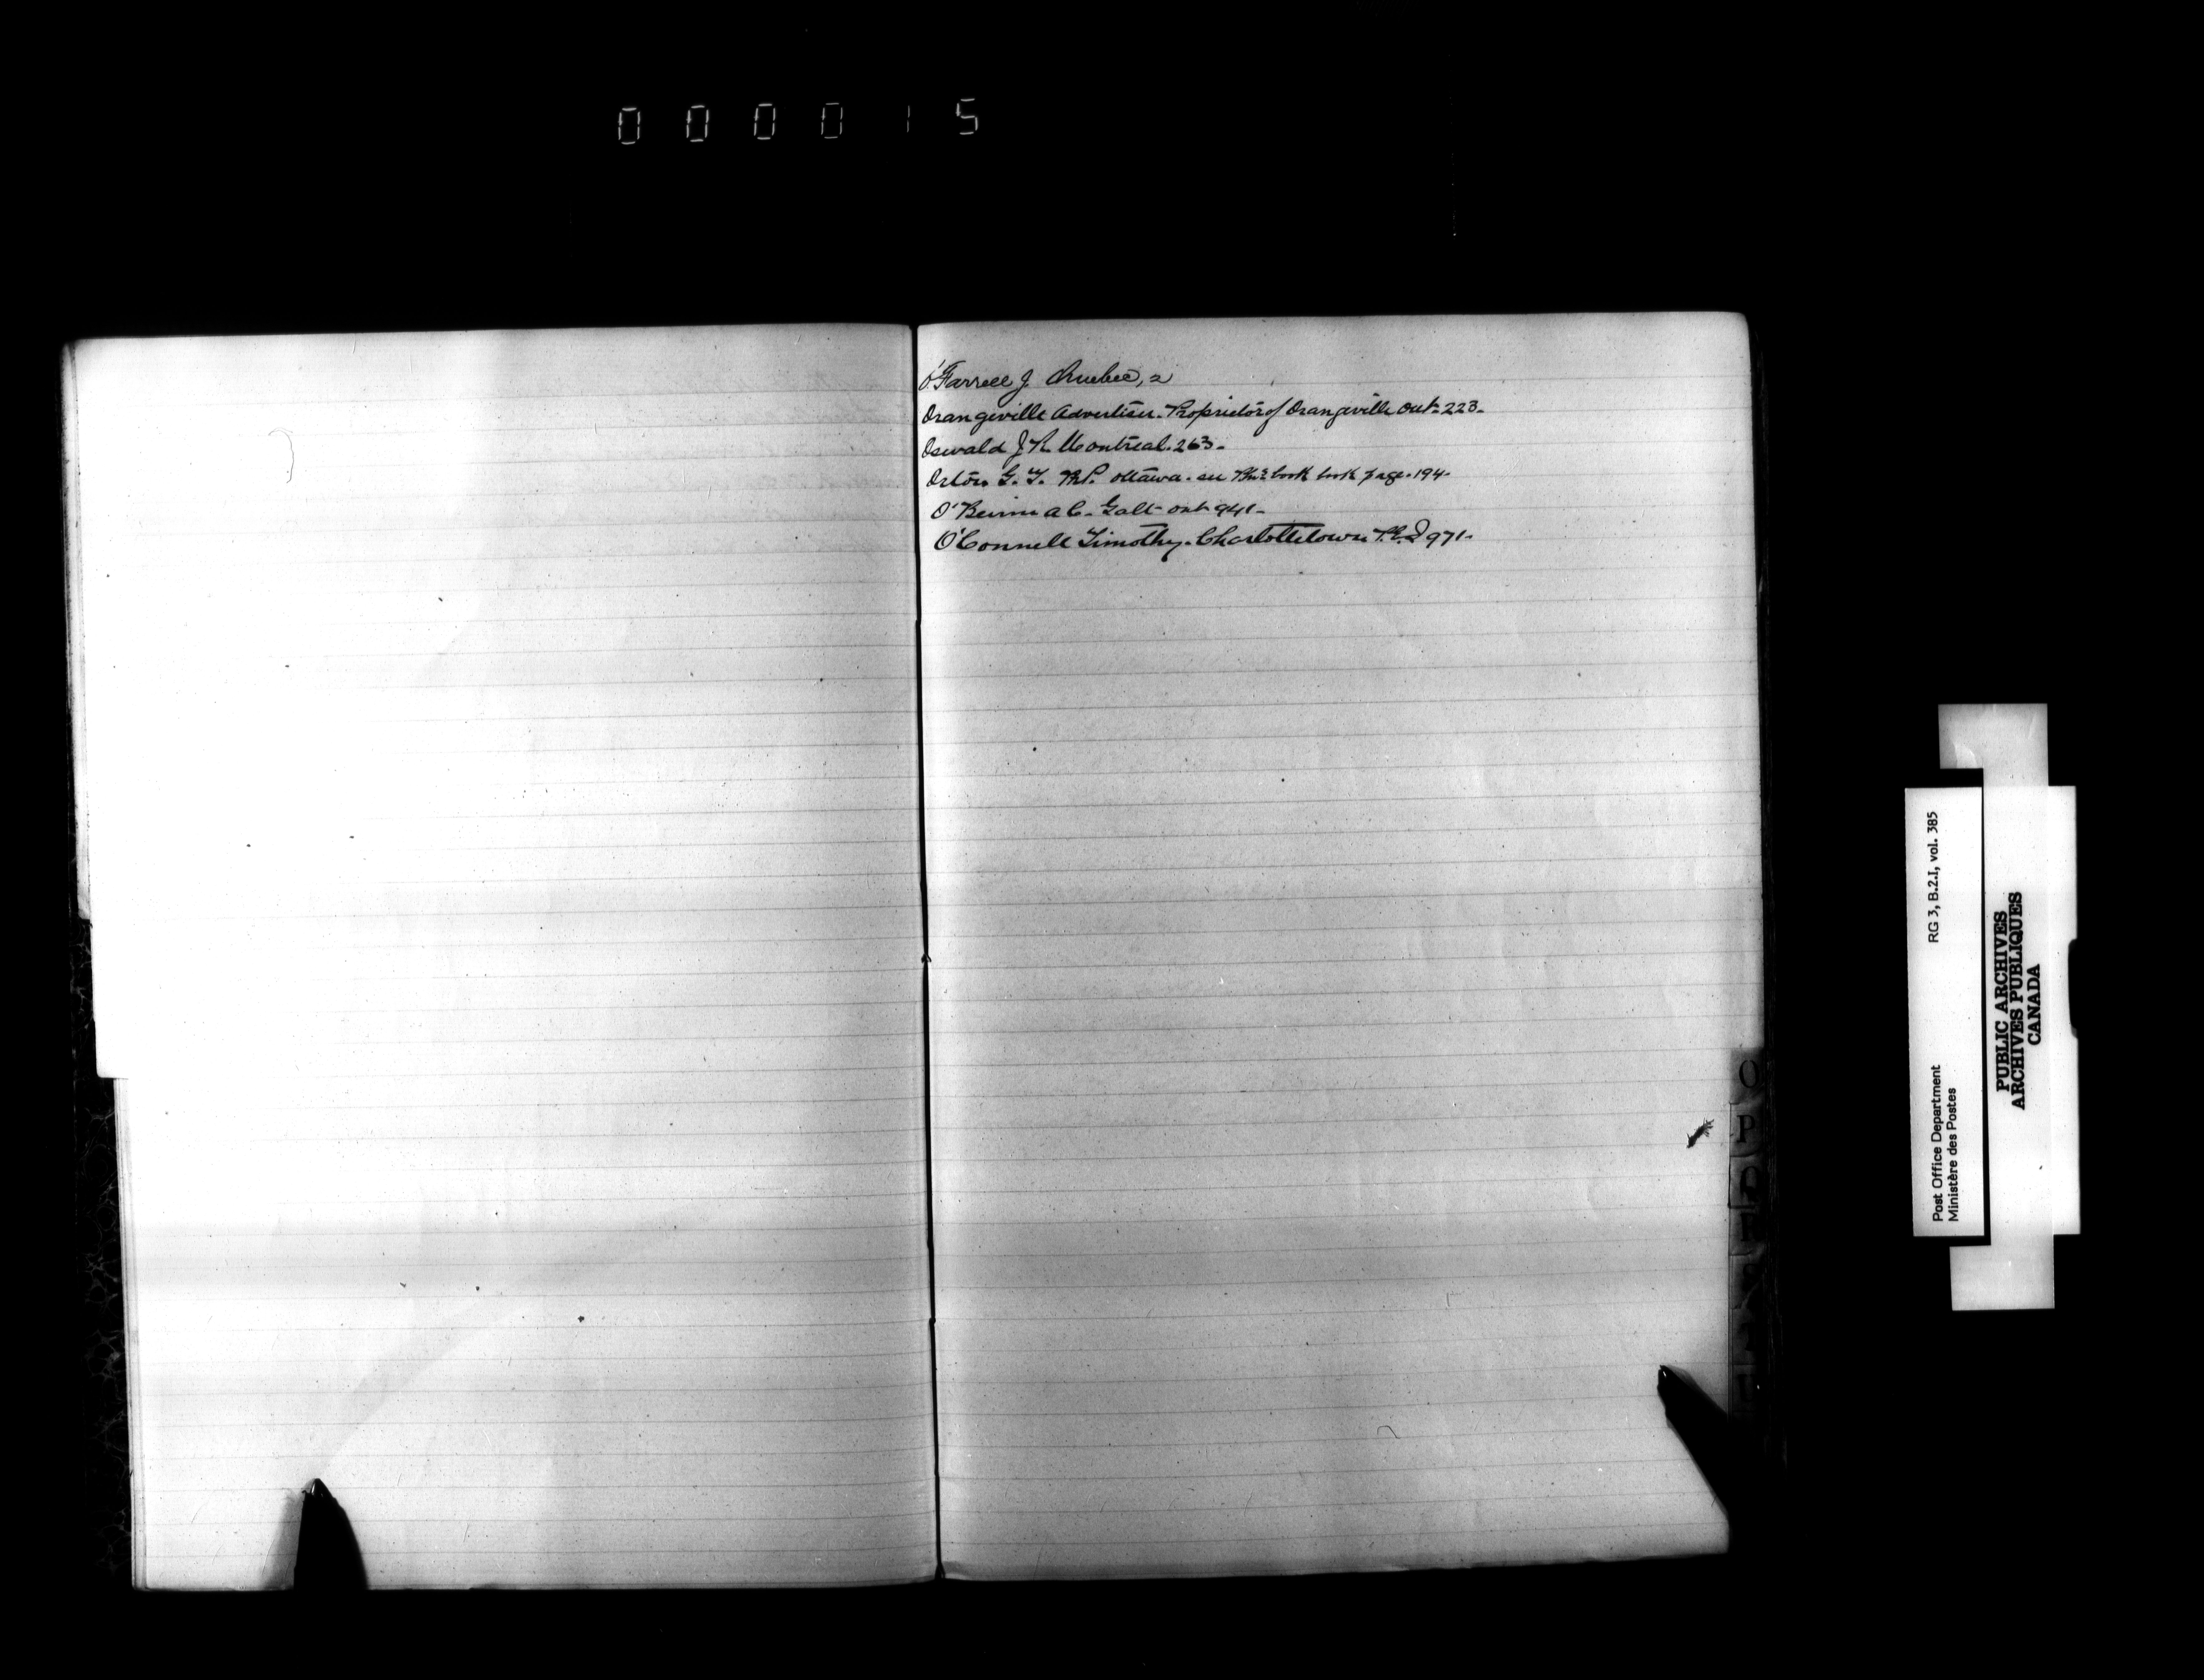 000015
O'Farrell J. Quebec, 2
Orangeville Advertiser. Proprietor of Orangeville Ont. 223.
Oswald J R. Montreal. 263.
Orton G. T. M.P. Ottawa. see book book page. 194.
O'Beirne A C. Galt Ont 941.
O'Connell Timothy. Charlottetown P.E.I 971.
O
P
RG 3, B.2.I, vol. 385
Post Office Department
Ministère des Postes
PUBLIC ARCHIVES
ARCHIVES PUBLIQUES
CANADA